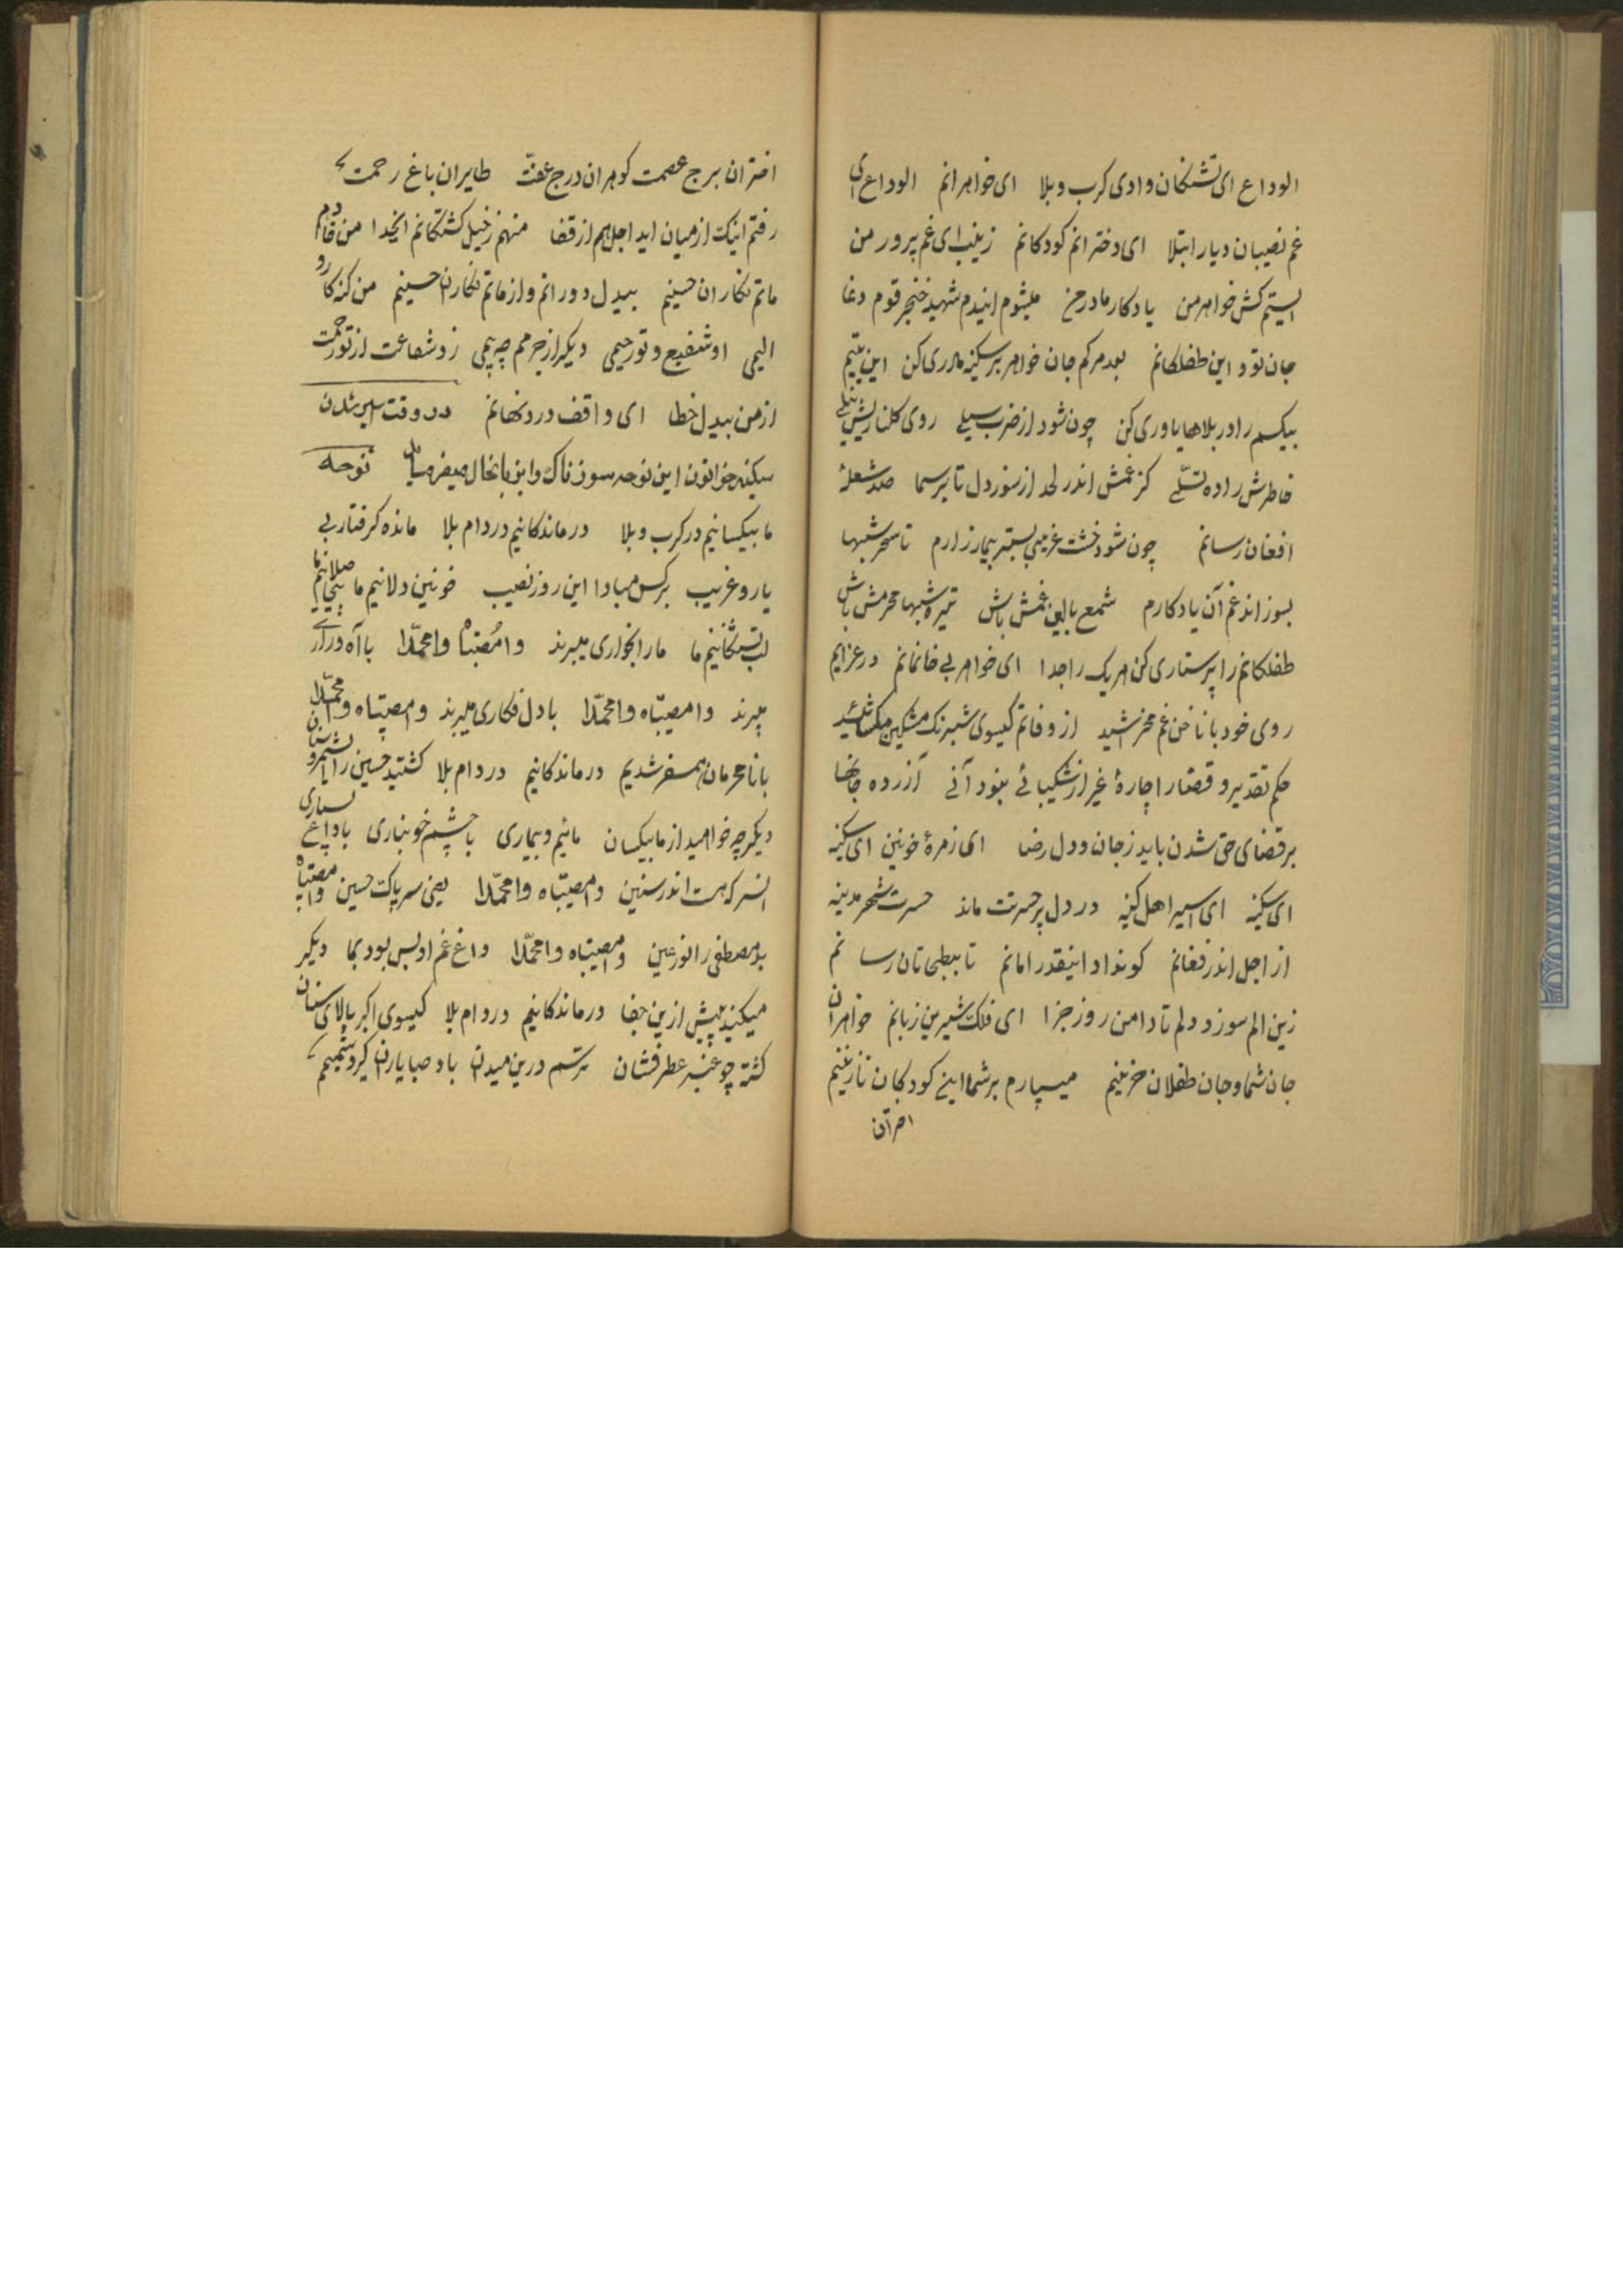 الوداع ای تشنکان وادی کرب وبلا ای خواهرانم الوداع ای
غم نصیبان دیار ابتلا ای دخترانم کودکانم زینب ای غم پرور من
ایستم کش خواهر من یادکار مادر من میشوم ایندم شهید خنجر قوم دغا
جان تو و این طفلکانم بعد مرکم جان خواهر بر سکینه مادری کن این یتیم
بیکسم را در بلاها یاوری کن چون شود از ضرب سیلی روی کلنارش نیلی
خاطرش را ده تسلّی کز غمش اندر لحد از سوز دل تا بر سما صد شعلۀ
افغان رسانم چون شود خشت غریبی بستر بیمار زارم تا سحر شبها
بسوزاند غم آن یادکارم شمع بالین غمش باش تیره شبها محرمش باش
طفلکانم را پرستاری کن هر یک را جدا ای خواهر بی خانمانم در عزایم
روی خود با ناخن غم مخراشید از وفاتم کیسوی شبرنک مشکین مکشائید
حکم تقدیر و قضا را چارۀ غیر از شکیبائی نبود آنی آزرده جانها
بر قضای حق شدن باید ز جان و دل رضا ای زمرۀ خونین ای سکینه
ای سکینه ای اسیر اهل کینه در دل پر حسرتت ماند حسرت شهر مدینه
از اجل اندر فغانم کو نداد اینقدر امانم تا ببطحی تان رسا نم
زین الم سوزد دلم تا دامن روز جزا ای فلک شیرین زبانم خواهران
جان شما و جان طفلان حزینم میسپارم بر شما این کودکان نازنینم
اختران برج عصمت کوهران درج عفّت طایران باغ رحمت
رفتم اینک از میان اید اجل هم از قفا منهم ز خیل کشتکانم ایخدا من خادم
ماتم نکاران حسینم بیدل دورانم و از ماتم نکاران حسینم من کنه کارو
الیمی او شفیع و تو رحیمی دیکر از جرمم چه بیمی زو شفاعت از تو رحمت
از من بیدل خطا ای واقف درد نهانم در وقت اسیر شدن
سکینه خواتون این نوحه سوزناک را بزبانحال میفرماید نوحه
ما بیکسانیم در کرب وبلا در ماندکانیم در دام بلا مانده کرفتار بی
یار و غریب بر کس مبادا این روز نصیب خونین دلانیم ما
لب تشنکانیم ما ما را بخواری میبرند وا مُصیبتاه وا محمّدا با آه و زاری
میبرند وا مصیبتاه وا محمّدا با دل فکاری میبرند وا مصیبتاه وا محمّدا
با نا محرمان همسفر شدیم در ماندکانیم در دام بلا کشتید حسین را
دیکر چه خواهید از ما بیکسان مائیم و بیماری با چشم خونباری
انسر که هست اندر سنین وا مصیبتاه وا محمّدا یعنی سر پاک حسین وا مصیبتاه
بد مصطفی را نور عین وا مصیبتاه وا محمّدا داغ غم او بس بود بما دیکر
میکنید بیش ازین جفا در ماندکانیم در دام بلا کیسوی اکبر بالای سنان
کشته چو عنبر عطر فشان ترسم درین میدان باد صبا